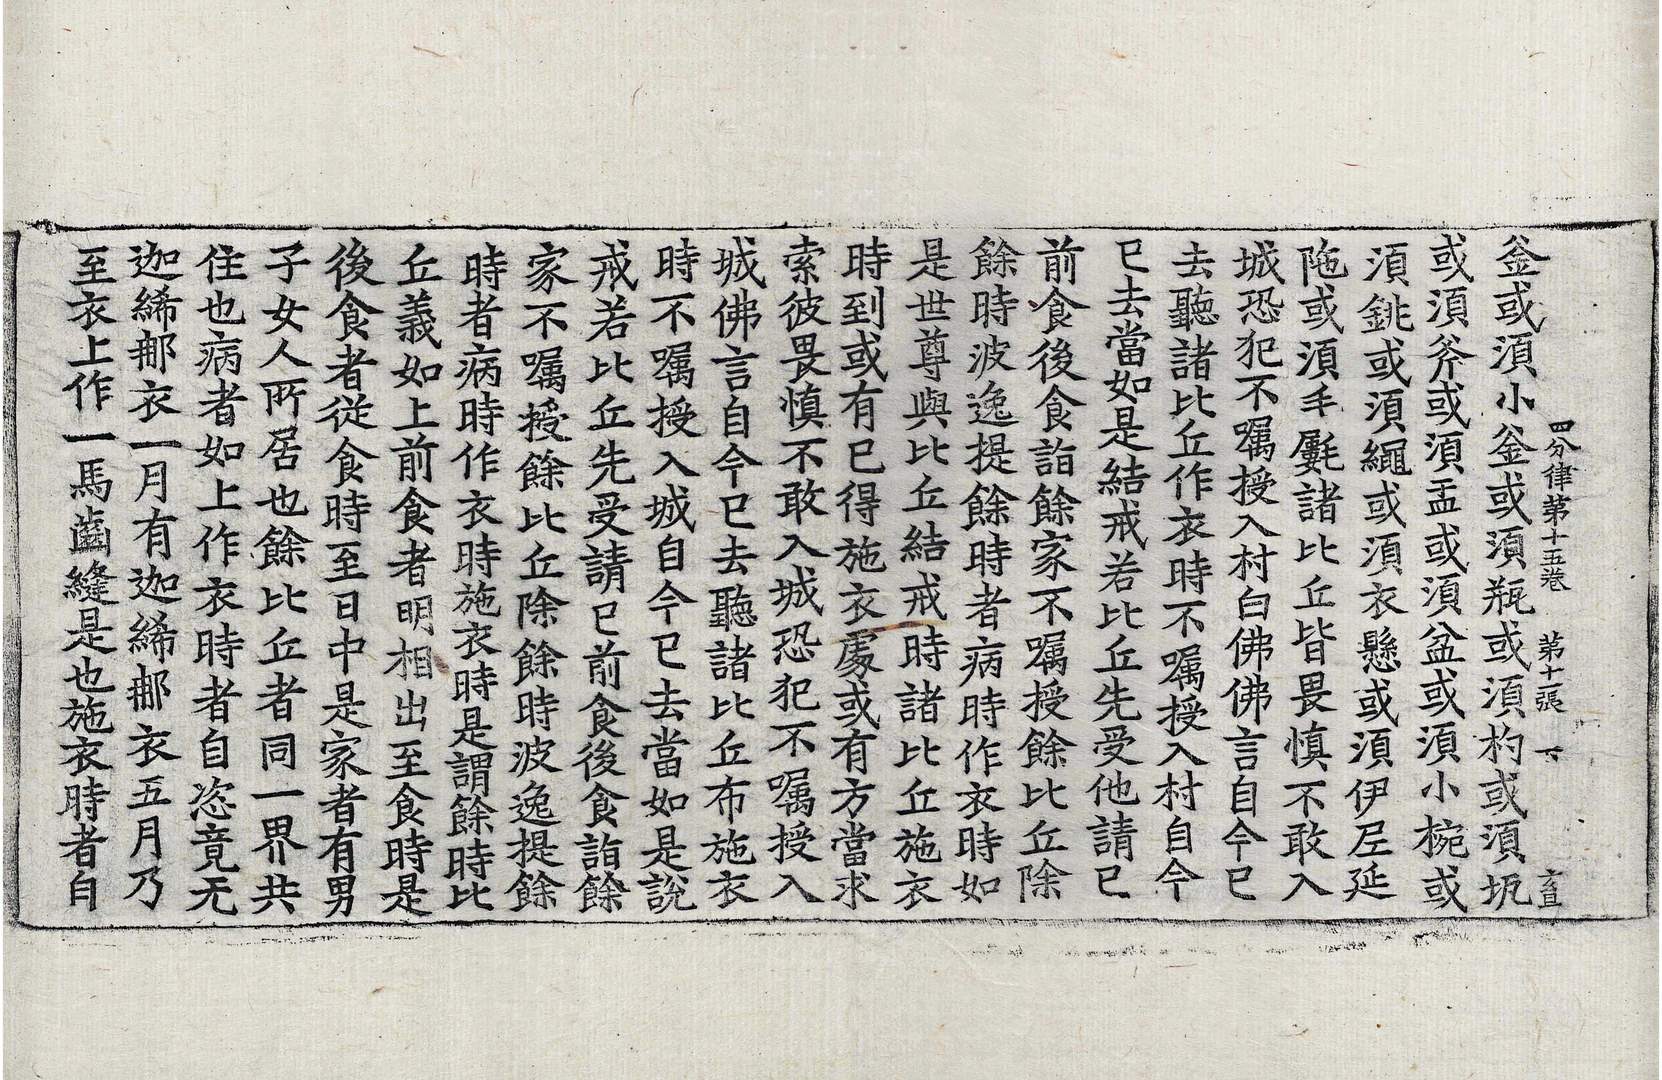 四分律第十五卷 第十一張 下
釜或須小釜或須瓶或須杓或須坬
或須斧或須盂或須盆或須小椀或
須銚或須繩或須衣懸或須伊尼延
陁或須毛氎諸比丘皆畏慎不敢入
城恐犯不囑授入村白佛佛言自今已
去聽諸比丘作衣時不囑授入村自今
已去當如是結戒若比丘先受他請已
前食後食詣餘家不囑授餘比丘除
餘時波逸提餘時者病時作衣時如
是世尊與比丘結戒時諸比丘施衣
時到或有已得施衣處或有方當求
索彼畏慎不敢入城恐犯不囑授入
城佛言自今已去聽諸比丘布施衣
時不囑授入城自今已去當如是說
戒若比丘先受請已前食後食詣餘
家不囑授餘比丘除餘時波逸提餘
時者病時作衣時施衣時是謂餘時比
丘義如上前食者明相出至食時是
後食者從食時至日中是家者有男
子女人所居也餘比丘者同一界共
住也病者如上作衣時者自恣竟无
迦絺那衣一月有迦絺那衣五月乃
至衣上作一馬齒縫是也施衣時者自